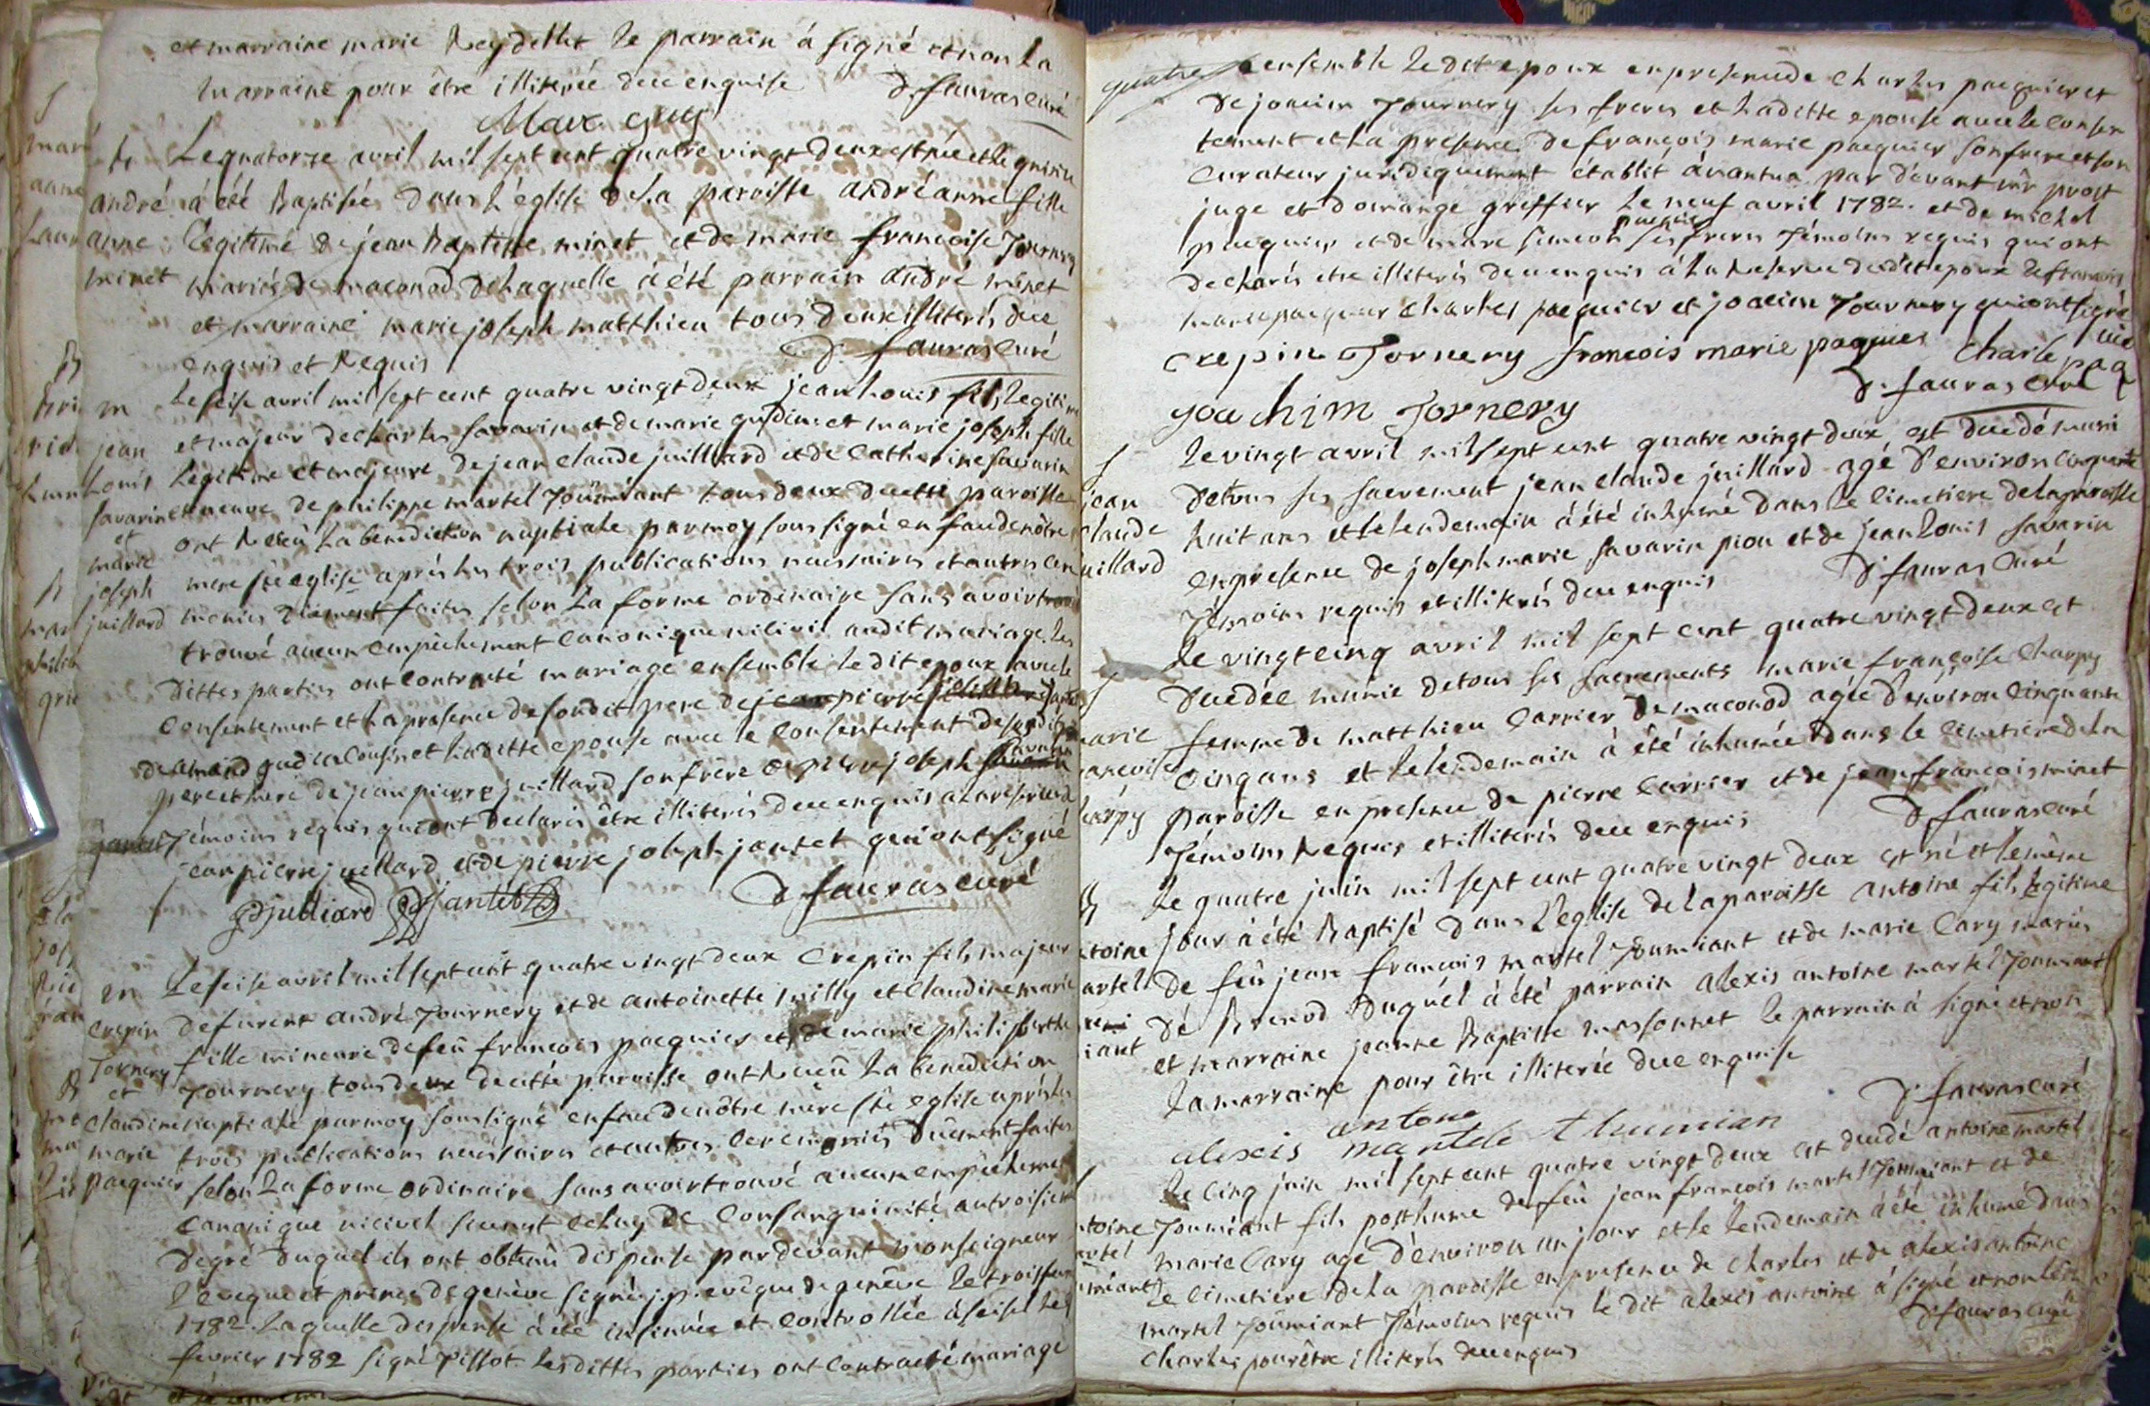 et marraine marie Reydellet le parrain á signé et non la
marraine pour être illiterée de ce enquise D. fauras curé
Max guy
b Le quatorze avril mil sept cent quatre vingt deux est née et le
andré á été Baptisée dans L'église de La paroisse andréanne fille
anne Légitime de jean Baptiste minet et de marie francoise Tornery
minet mariés de maconod de Laquelle á été parrain andré minet
et marraine marie joseph matthieu tous deux illiterés de ce
enquis et Requis D. fauras curé
m Le seise avril mil sept cent quatre vingt deux jean Louis fils Legitime
jean et majeur de charles savarin et de marie gudin et marie joseph fille
Louis Légitime et majeure de jean claude juillard et de Catherine savarin
savarin et veuve de philippe martel Joumiant tous deux de cette paroisse
et
marie ont Reçû La benediction nuptiale par moy soussigné en face de nôtre
joseph mere ste eglise aprés les trois publications necessaires et autres cere
juillard monies düement faites selon La forme ordinaire sans avoir
trouvé aucun empêchement canonique ni civil audit mariage. Les
dittes parties ont contracté mariage ensemble le dit epoux avec le
consentement et La presence de son dit pere de
gudin cousin et Laditte epouse avec le consentement de sesdits
pere et mere de jean pierre juillard son frère de pierre joseph
jantet Témoins requis qui ont déclarés être illiterés de ce enquis a La reserve de
jean pierre juillard et de pierre joseph jantet qui ont signé
jpjulliard pjjantet D. fauras curé
m Le seise avril mil sept cent quatre vingt deux Crepin fils majeur
Crepin defunt andré Journery et de antoinette milly et claudine marie
Tornery fille mineure de feû francois pacquier et de marie philiberthe
et Journery tous deux de cette paroisse ont Reçeû La benediction
claudine nuptiale par moy soussigné en face de nôtre mère ste eglise aprés les
marie trois publications necessaires et autres ceremonies düement faites
pacquier selon La forme ordinaire sans avoir trouvé aucun empêchement
canonique ni civil sinon celuy de consanguinité au troisieme
degre duquel ils ont obtenû dispense par devant monseigneur
L'eveque et prince de genève signé j. p. evêque de genève le trois
1782. Laquelle dispense á été insinuée et controllée á seisel le
fevrier 1782 signé pissot les dittes parties ont contracté mariage
quatre ensemble le dit epoux en presence de charles pacquier et
de joacim Journery ses freres et Laditte epouse avec le consen
tement et La presence de françois marie pacquier son frere et son
curateur juridiquement établit á nantua par dévant mr prost
juge et domange greffier Le neuf avril 1782. et de michel
pacquier et de marc simeon pacquier ses freres Témoins requis qui ont
declarés etre illiterés de ce enquis á La Reserve dudit epoux de francois
marie pacquier charles pacquier et joacim Journery qui ont signé
crepin Tornery francois marie paquier Charle paq
uie
youchim Tornery D. fauras curé
jean Le vingt avril mil sept cent quatre vingt deux est decedé muni
claude de tous ses sacrement jean claude juillard agé d'environ cinquante
juillard huit ans et le lendemain á été inhumé dans le cimetiere de la paroisse
en presence de joseph marie savarin piou et de jean Louis savarin
Témoins requis et illiterés de ce enquis D. fauras curé
Le vingt cinq avril mil sept cent quatre vingt deux est
decedée munie de tous ses sacrements marie françoise Charpy
marie femme de matthieu Carrier de maconod agée d'environ cinquante
francoise cinq ans et le lendemain á été inhumée dans le cimetiere de la
charpy paroisse en presence de pierre Carrier et de jean francois minet
Témoins Requis et illiterés de ce enquis D. fauras curé
B Le quatre juin mil sept cent quatre vingt deux est né et le même
antoine jour á été Baptisé dans L'eglise de la paroisse antoine fils Légitime
martel de feû jean francois martel Joumiant et de marie Cary mariés
de Brenod duquel á été parrain alexis antoine martel Joumiant
et marraine jeanne Baptiste massonnet le parrain á signé et non
La marraine pour être illiterée de ce enquise
D. fauras curé
alexis antone martele thumian
Le cinq juin mil sept cent quatre vingt deux est decedé antoine martel
antoine Joumiant fils posthume de feû jean francois martel Joumiant et de
martel marie Cary agé d'environ un jour et le lendemain á été inhumé dans
Le cimetiere de la paroisse en presence de charles et de alexis antoine
martel Joumiant Témoins requis le dit alexis antoine á signé et non ledit
charles pour être illiterés de ce enquis D. fauras curé